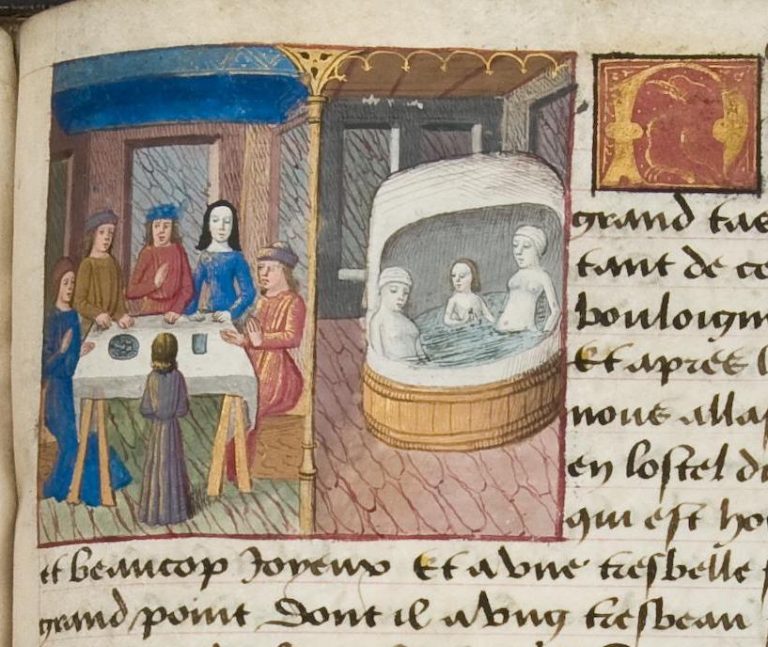 grand tas
tant de ce
bouloign
Et apres l
nous alla
en lostel d
qui est ho
et beaucop Joyeux Et a vne tresbelle
grand point Dont il a vng tresbeau